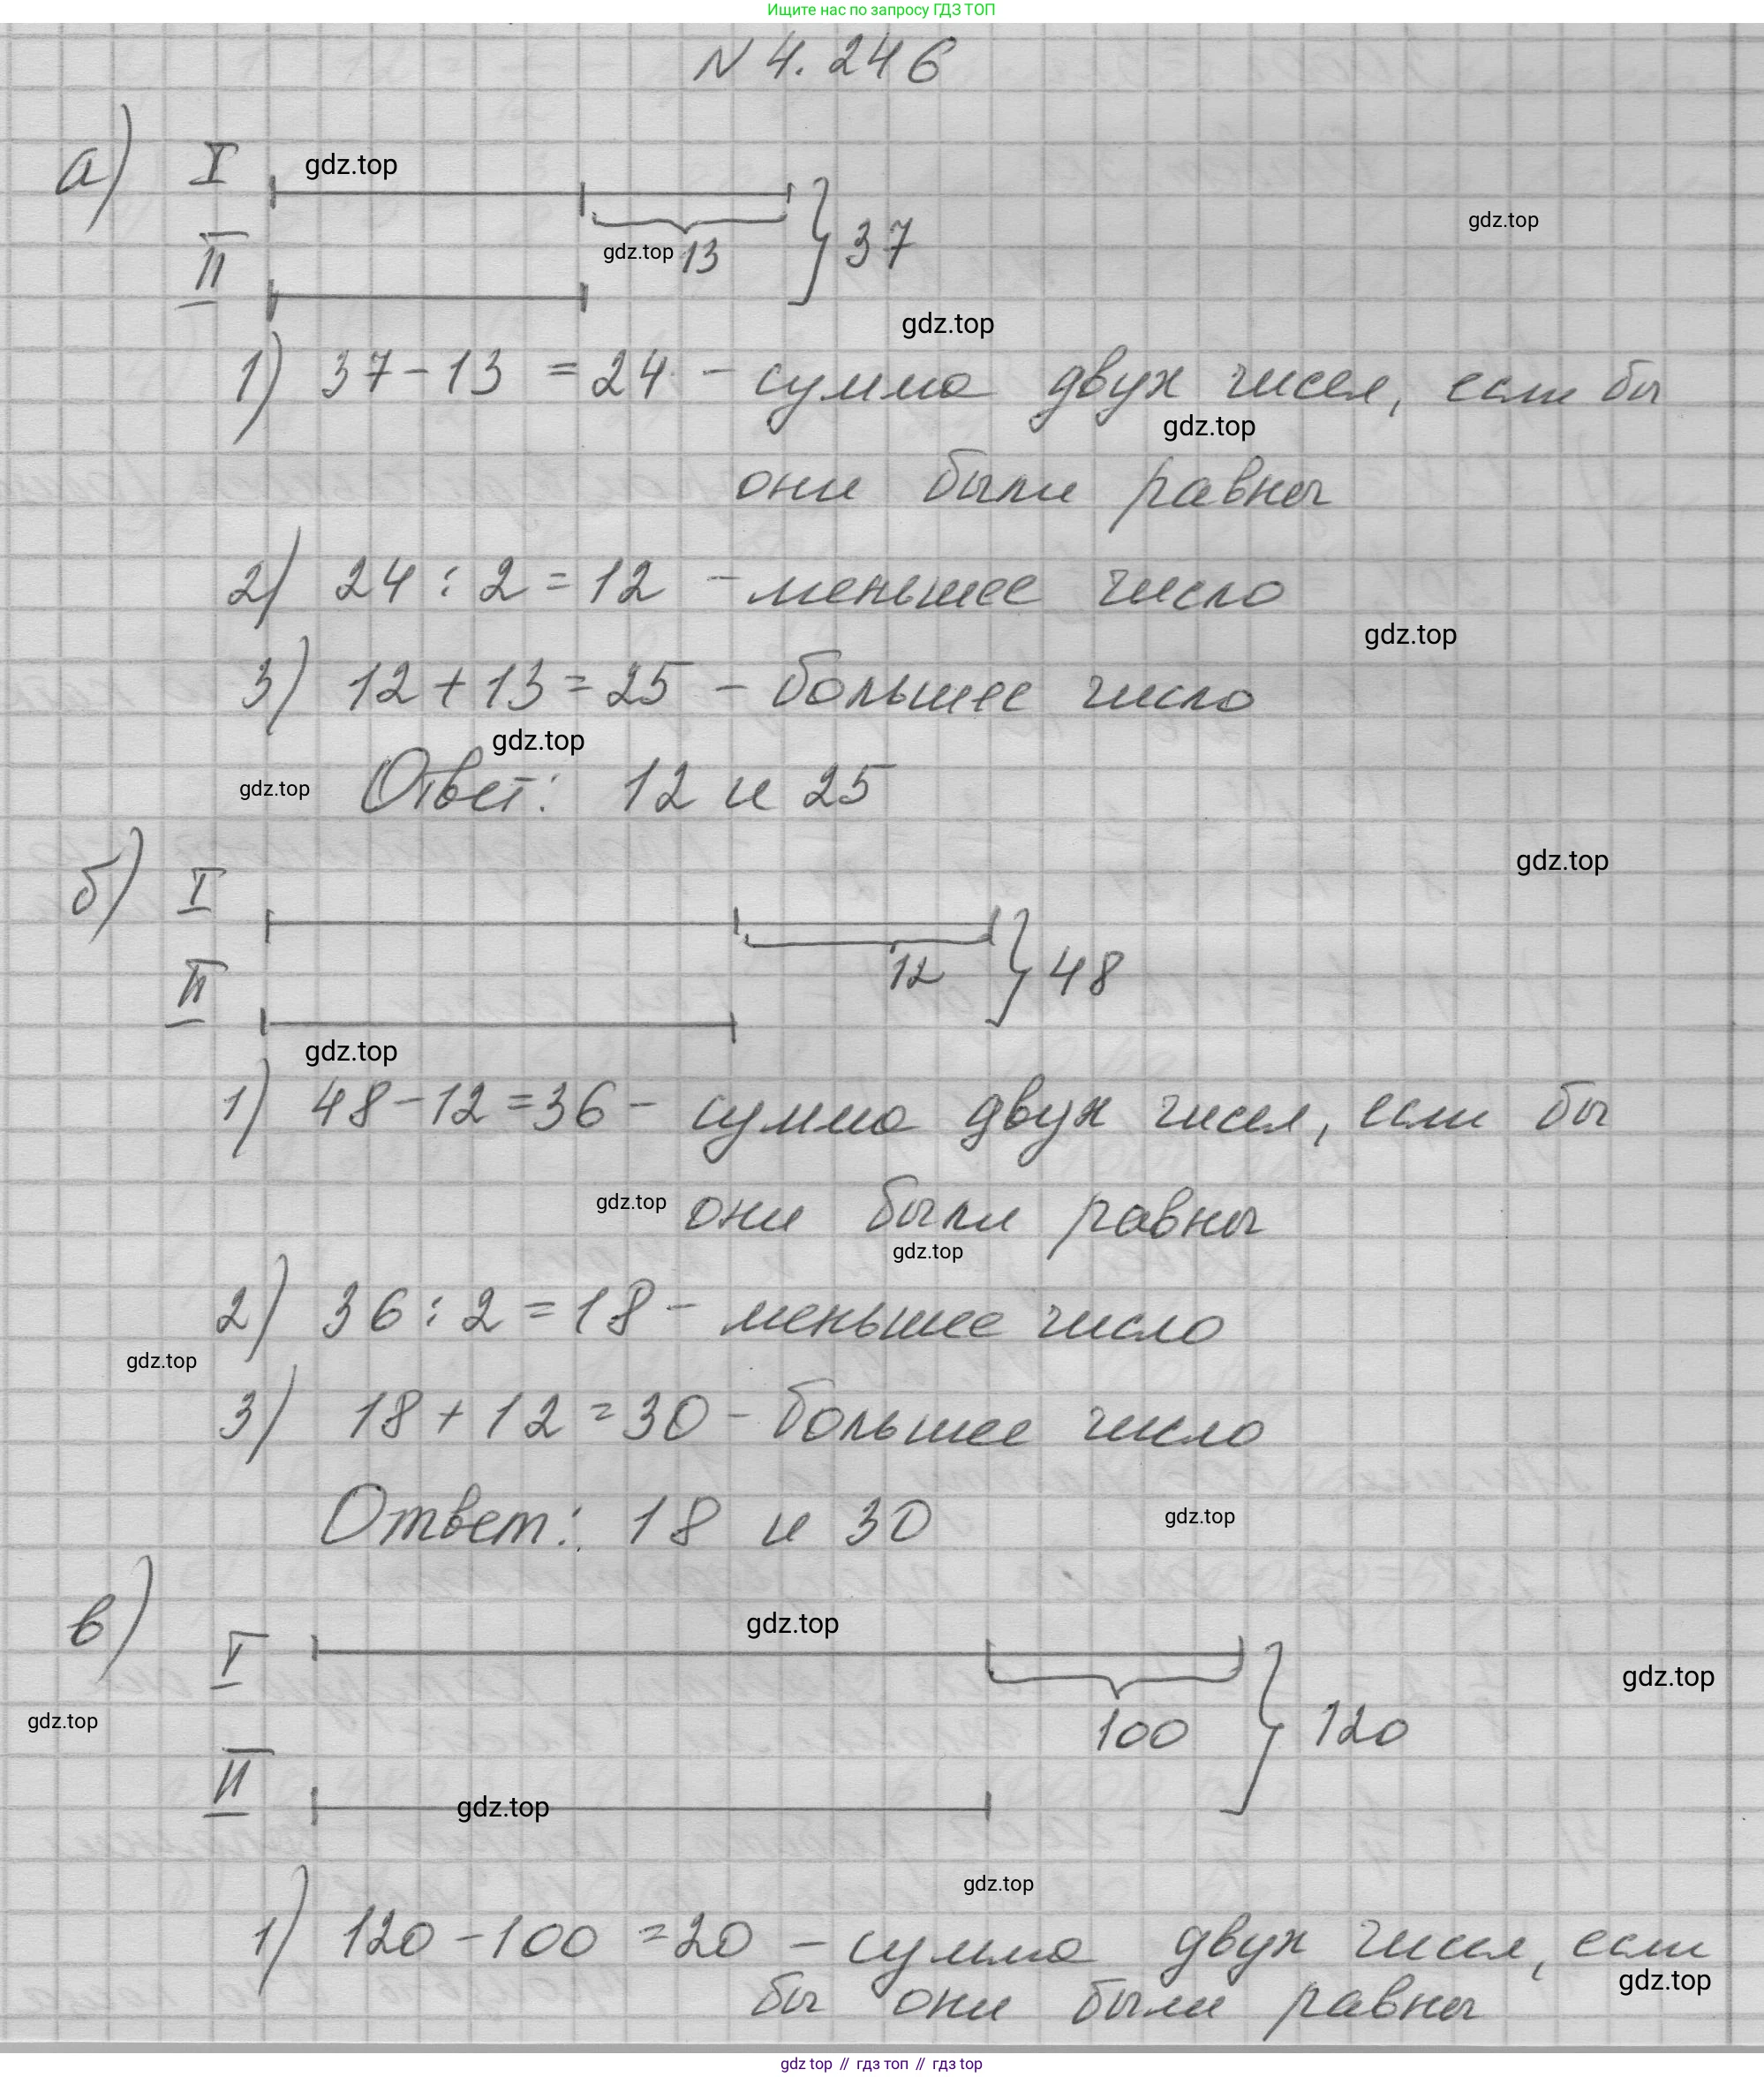 Ищите нас по запросу ГДЗ ТОП
N 4.246
а) I
gdz.top
gdz.top
II
gdz.top 13 } 37
gdz.top
1) 37-13 = 24 - сумма двух чисел, если бы
gdz.top
они были равны
2) 24 : 2 = 12 - меньшее число
gdz.top
3) 12 + 13 = 25 - большее число
gdz.top
gdz.top Ответ: 12 и 25
gdz.top
б) I
II
12 } 48
gdz.top
1) 48-12=36 - сумма двух чисел, если бы
gdz.top они были равны
gdz.top
2) 36 : 2 = 18 - меньшее число
gdz.top
3) 18 + 12 = 30 - большее число
Ответ: 18 и 30 gdz.top
в) I
gdz.top
gdz.top
gdz.top
100 } 120
II
gdz.top
gdz.top
1) 120-100 = 20 - сумма двух чисел, если
gdz.top
бы они были равны
gdz top // гдз топ // гдз top